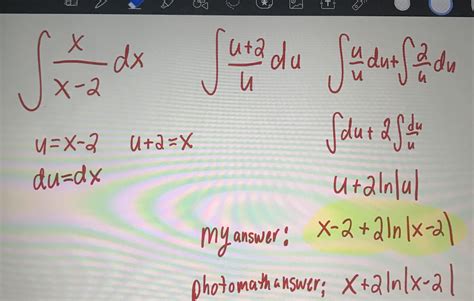 ∫ x/(x-2) dx
u = x-2   u+2 = x
du = dx
∫ (u+2)/u du
∫ u/u du + ∫ 2/u du
∫ du + 2∫ du/u
u + 2ln|u|
my answer: x-2+2ln|x-2|
photomath answer: x+2ln|x-2|